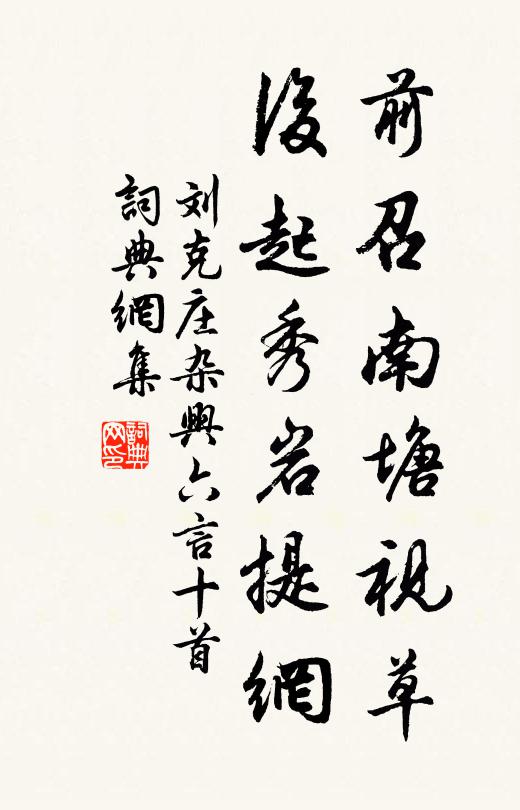 前召南塘視草
後起秀岩提網
刘克庄杂興六言十首
詞典網集
詞典网印